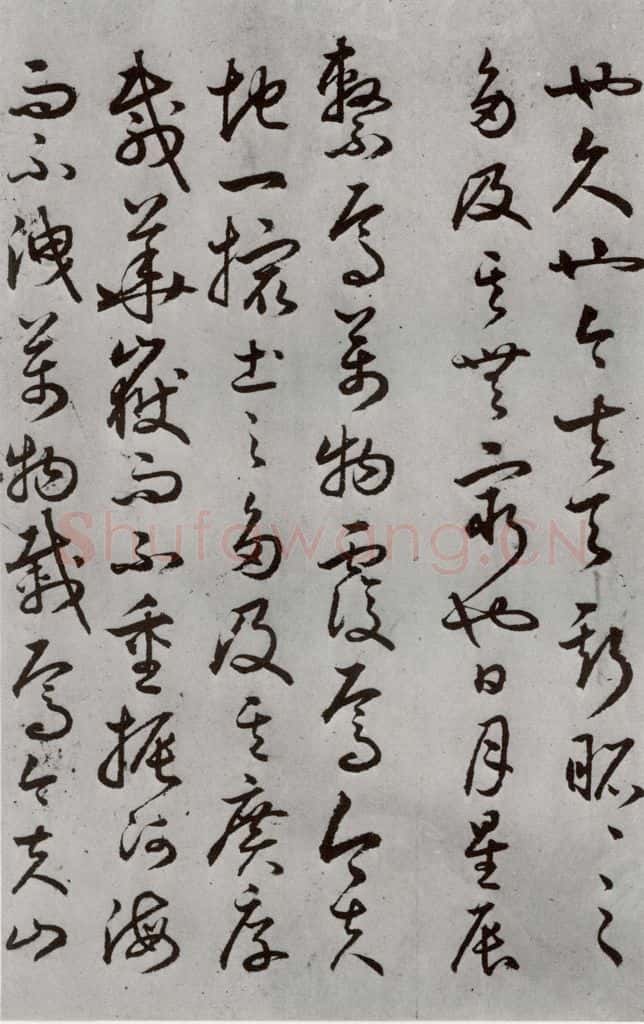 也久也今夫天斯昭〻之
多及其無窮也日月星辰
繫焉萬物覆焉今夫
地一撮土之多及其廣厚
載華嶽而不重振河海
而不洩萬物載焉今夫山
Shufawang.CN